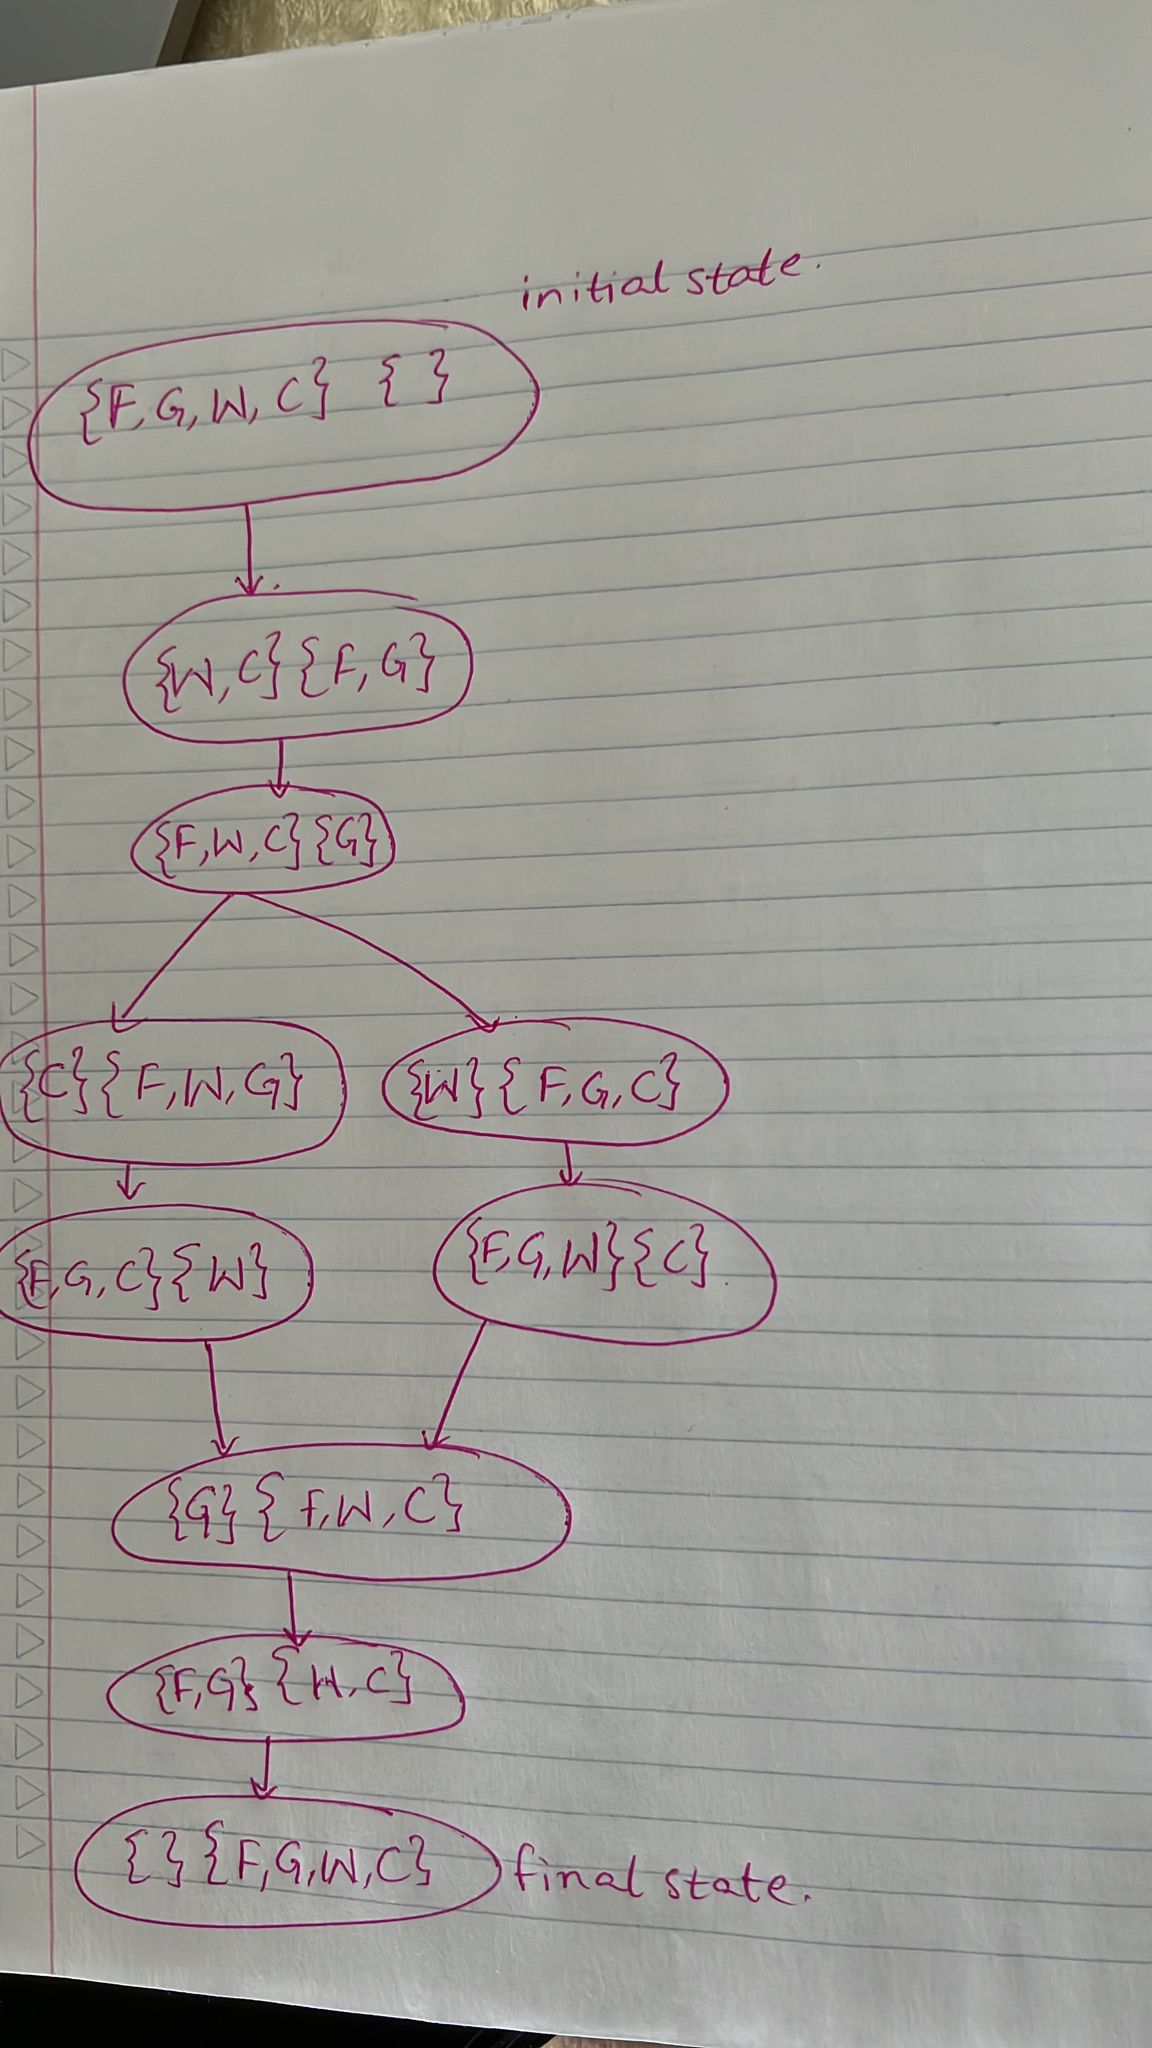 initial state.
{F, G, W, C} { }
{W, C} {F, G}
{F, W, C} {G}
{C} {F, W, G} {W} {F, G, C}
{F, G, C} {W} {F, G, W} {C}
{G} {F, W, C}
{F, G} {W, C}
{ } {F, G, W, C} final state.